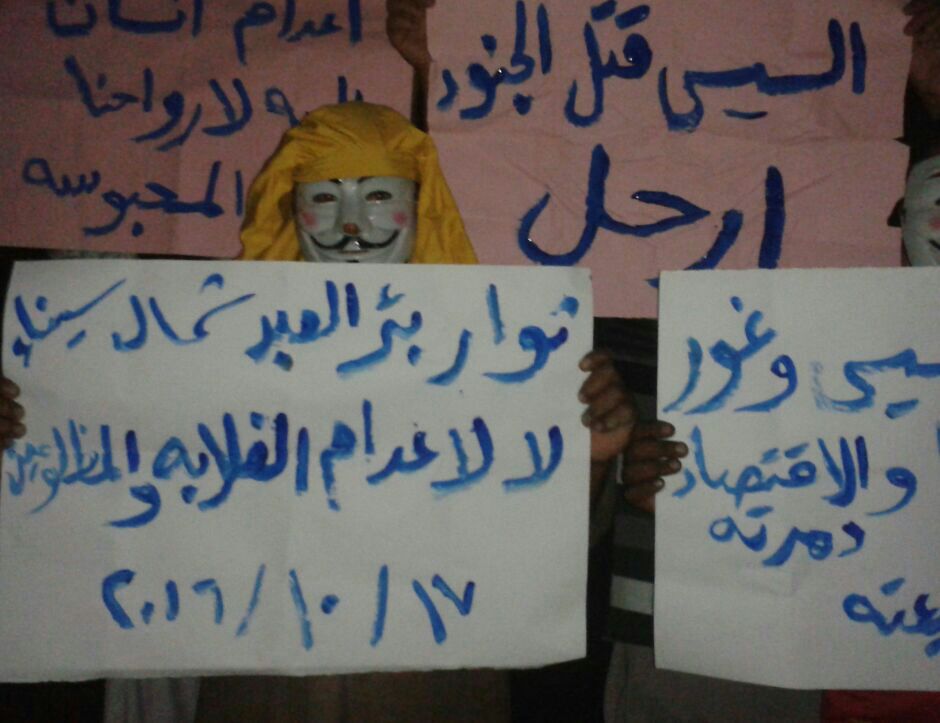 اعدام انسان
لارواحنا
المحبوسه
السيسى قتل الجنود
ارحل
ثوار بئر العبد شمال سيناء
لا لاعدام الغلابه والمظلومين
١٧/١٠/٢٠١٦
وغور
والاقتصاد
دمرته